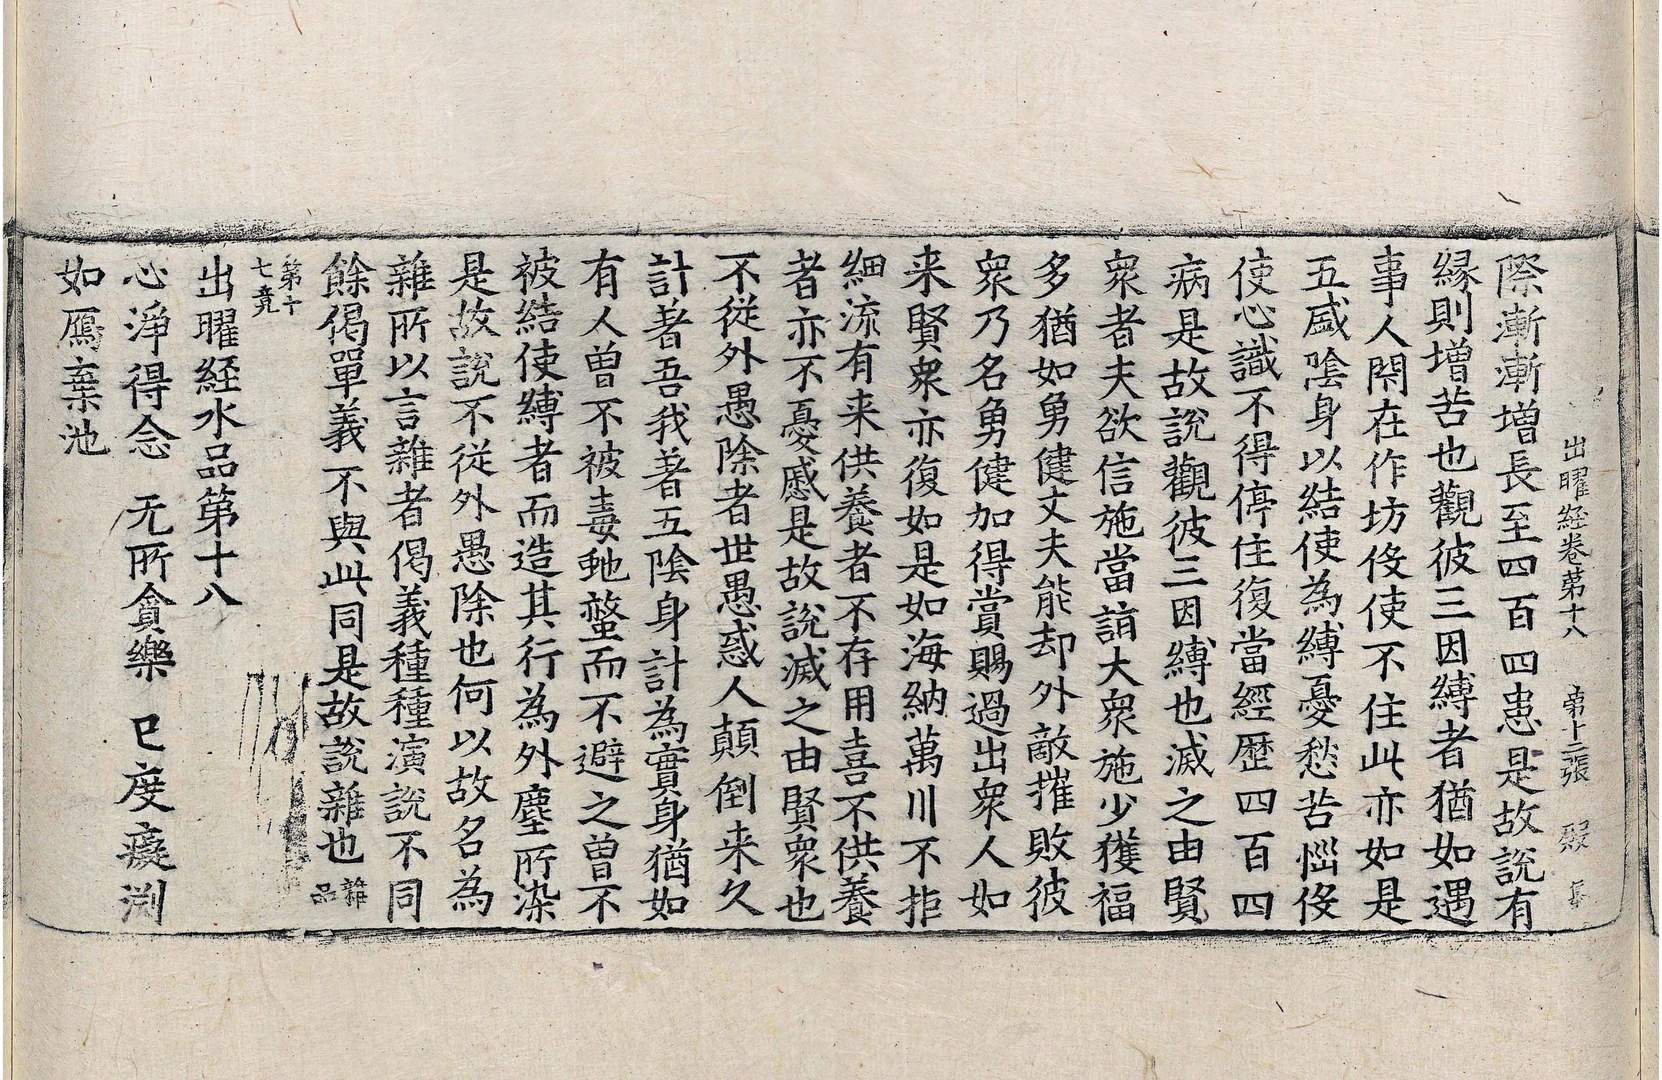 出曜經卷第十八 第十二張
際漸漸增長至四百四患是故說有
緣則增苦也觀彼三因縛者猶如遇
事人閑在作坊伇使不住此亦如是
五盛陰身以結使為縛憂愁苦惱伇
使心識不得停住復當經歷四百四
病是故說觀彼三因縛也滅之由賢
眾者夫欲信施當誚大眾施少獲福
多猶如勇健丈夫能却外敵摧敗彼
眾乃名勇健加得賞賜過出眾人如
来賢眾亦復如是如海納萬川不拒
細流有来供養者不存用喜不供養
者亦不憂慼是故說滅之由賢眾也
不從外愚除者世愚惑人顛倒来久
計著吾我著五陰身計為實身猶如
有人曾不被毒虵螫而不避之曾不
被結使縛者而造其行為外塵所染
是故說不從外愚除也何以故名為
雜所以言雜者偈義種種演說不同
餘偈單義不與此同是故說雜也 雜品
第十七竟
出曜経水品第十八
心淨得念 无所貪樂 已度癡渕
如鴈棄池